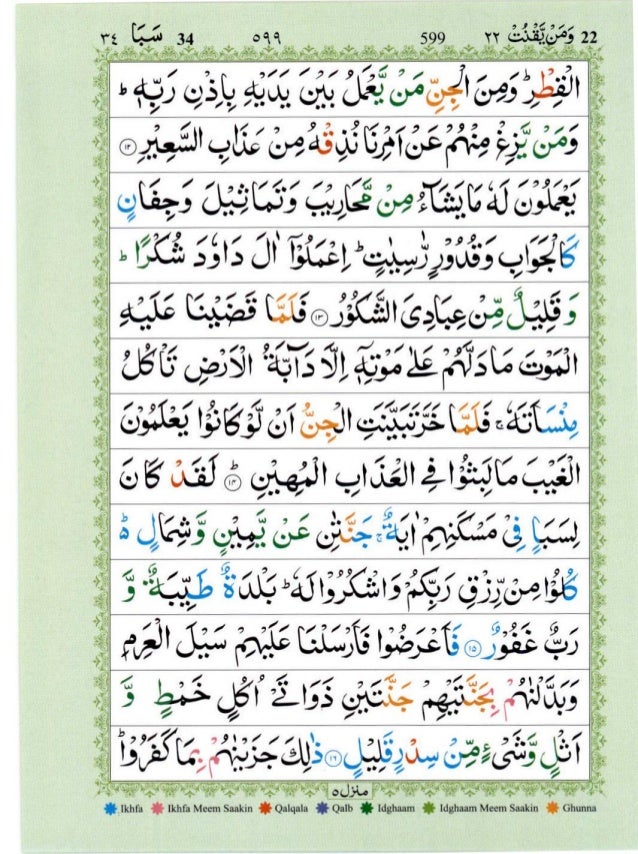 ٣٤ سَبَا 34 ٥٩٩ 599 وَمَنْ يَّقْنُتْ ٢٢ 22
الْقِطْرِ ؕ وَمِنَ الْجِنِّ مَنْ يَّعْمَلُ بَيْنَ يَدَيْهِ بِاِذْنِ رَبِّهٖ ؕ
وَمَنْ يَّزِغْ مِنْهُمْ عَنْ اَمْرِنَا نُذِقْهُ مِنْ عَذَابِ السَّعِيْرِ ﴿۱۲﴾
يَعْمَلُوْنَ لَهٗ مَا يَشَآءُ مِنْ مَّحَارِيْبَ وَتَمَاثِيْلَ وَجِفَانٍ
كَالْجَوَابِ وَقُدُوْرٍ رّٰسِيٰتٍ ؕ اِعْمَلُوْۤا اٰلَ دَاوٗدَ شُكْرًا ؕ
وَقَلِيْلٌ مِّنْ عِبَادِىَ الشَّكُوْرُ ﴿۱۳﴾ فَلَمَّا قَضَيْنَا عَلَيْهِ
الْمَوْتَ مَا دَلَّهُمْ عَلٰى مَوْتِهٖۤ اِلَّا دَآبَّةُ الْاَرْضِ تَاْكُلُ
مِنْسَاَتَهٗ ۚ فَلَمَّا خَرَّ تَبَيَّنَتِ الْجِنُّ اَنْ لَّوْ كَانُوْا يَعْلَمُوْنَ
الْغَيْبَ مَا لَبِثُوْا فِى الْعَذَابِ الْمُهِيْنِ ؕ﴿۱۴﴾ لَقَدْ كَانَ
لِسَبَاٍ فِىْ مَسْكَنِهِمْ اٰيَةٌ ۚ جَنَّتٰنِ عَنْ يَّمِيْنٍ وَّشِمَالٍ ؕ۬
كُلُوْا مِنْ رِّزْقِ رَبِّكُمْ وَاشْكُرُوْا لَهٗ ؕ بَلْدَةٌ طَيِّبَةٌ وَّ
رَبٌّ غَفُوْرٌ ﴿۱۵﴾ فَاَعْرَضُوْا فَاَرْسَلْنَا عَلَيْهِمْ سَيْلَ الْعَرِمِ
وَبَدَّلْنٰهُمْ بِجَنَّتَيْهِمْ جَنَّتَيْنِ ذَوَاتَىْ اُكُلٍ خَمْطٍ وَّ
اَثْلٍ وَّشَىْءٍ مِّنْ سِدْرٍ قَلِيْلٍ ﴿۱۶﴾ ذٰلِكَ جَزَيْنٰهُمْ بِمَا كَفَرُوْا ؕ
منزل ٥
Ikhfa Ikhfa Meem Saakin Qalqala Qalb Idghaam Idghaam Meem Saakin Ghunna